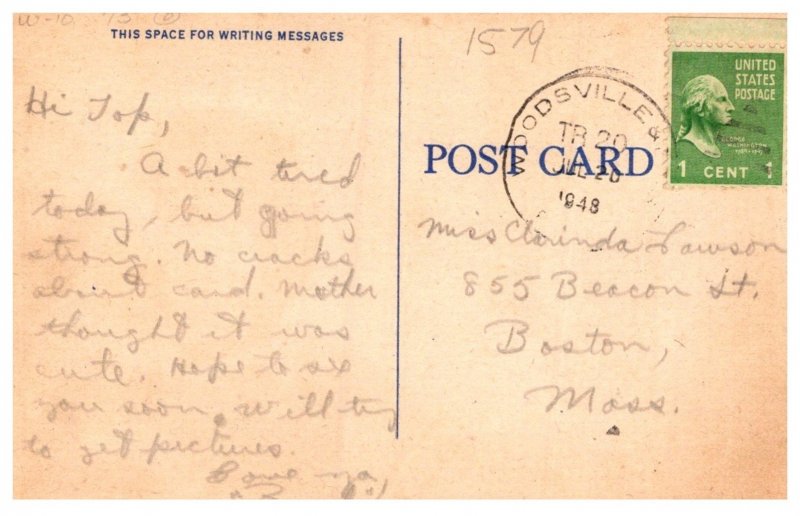 W-10
THIS SPACE FOR WRITING MESSAGES
1579
Hi Top,
A bit tired
today, but going
strong. No cracks
about card. Mother
thought it was
cute. Hope to see
you soon. will try
to get pictures.
Love ya,
WOODSVILLE &
TR 20
JUL 20
1948
UNITED
STATES
POSTAGE
GEORGE
WASHINGTON
1 CENT 1
POST CARD
Miss Clorinda Lawson
855 Beacon St.
Boston,
Mass.